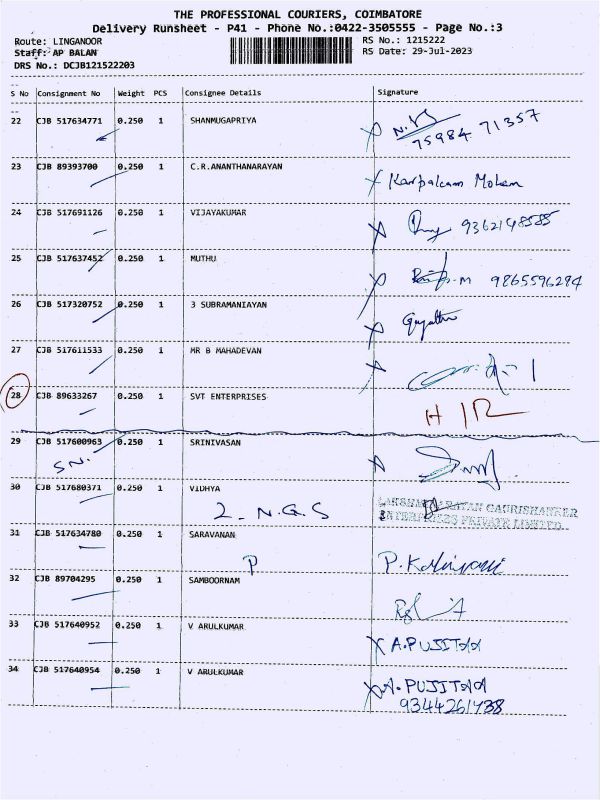 THE PROFESSIONAL COURIERS, COIMBATORE
Delivery Runsheet - P41 - Phone No.:0422-3505555 - Page No.:3
Route: LINGANOOR RS No.: 1215222
Staff: AP BALAN RS Date: 29-Jul-2023
DRS No.: DCJB121522203
S No Consignment No Weight PCS Consignee Details Signature
22 CJB 517634771 0.250 1 SHANMUGAPRIYA
75984 71357
23 CJB 89393700 0.250 1 C.R.ANANTHANARAYAN
24 CJB 517691126 0.250 1 VIJAYAKUMAR
25 CJB 517637452 0.250 1 MUTHU 9865596294
26 CJB 517320752 0.250 1 3 SUBRAMANIAYAN
27 CJB 517611533 0.250 1 MR B MAHADEVAN
28 CJB 89633267 0.250 1 SVT ENTERPRISES
29 CJB 517600963 0.250 1 SRINIVASAN
SN.
30 CJB 517680371 0.250 1 VIDHYA
2. N.G.S GAURISHANKER
ENTERPRISES PRIVATE LIMITED
31 CJB 517634780 0.250 1 SARAVANAN
P
32 CJB 89704295 0.250 1 SAMBOORNAM
33 CJB 517640952 0.250 1 V ARULKUMAR
34 CJB 517640954 0.250 1 V ARULKUMAR
9344261438